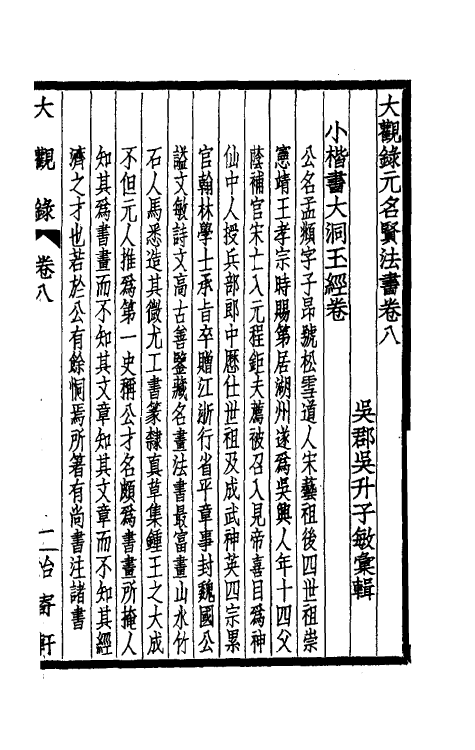 大觀錄元名賢法書卷八
吳郡吳升子敏彙輯
小楷書大洞玉經卷
公名孟頫字子昂號松雪道人宋藝祖後四世祖崇
憲靖王孝宗時賜第居湖州遂爲吳興人年十四父
蔭補官宋亡入元程鉅夫薦被召入見帝喜目爲神
仙中人授兵部郎中歷仕世祖及成武神英四宗累
官翰林學士承旨卒贈江浙行省平章事封魏國公
謚文敏詩文高古善鑒藏名畫法書最富畫山水竹
石人馬悉造其微尤工書篆隸真草集鍾王之大成
不但元人推爲第一史稱公才名頗爲書畫所掩人
知其爲書畫而不知其文章知其文章而不知其經
濟之才也若於公有餘恫焉所箸有尚書注諸書
大觀錄 卷八 一 怡寄軒